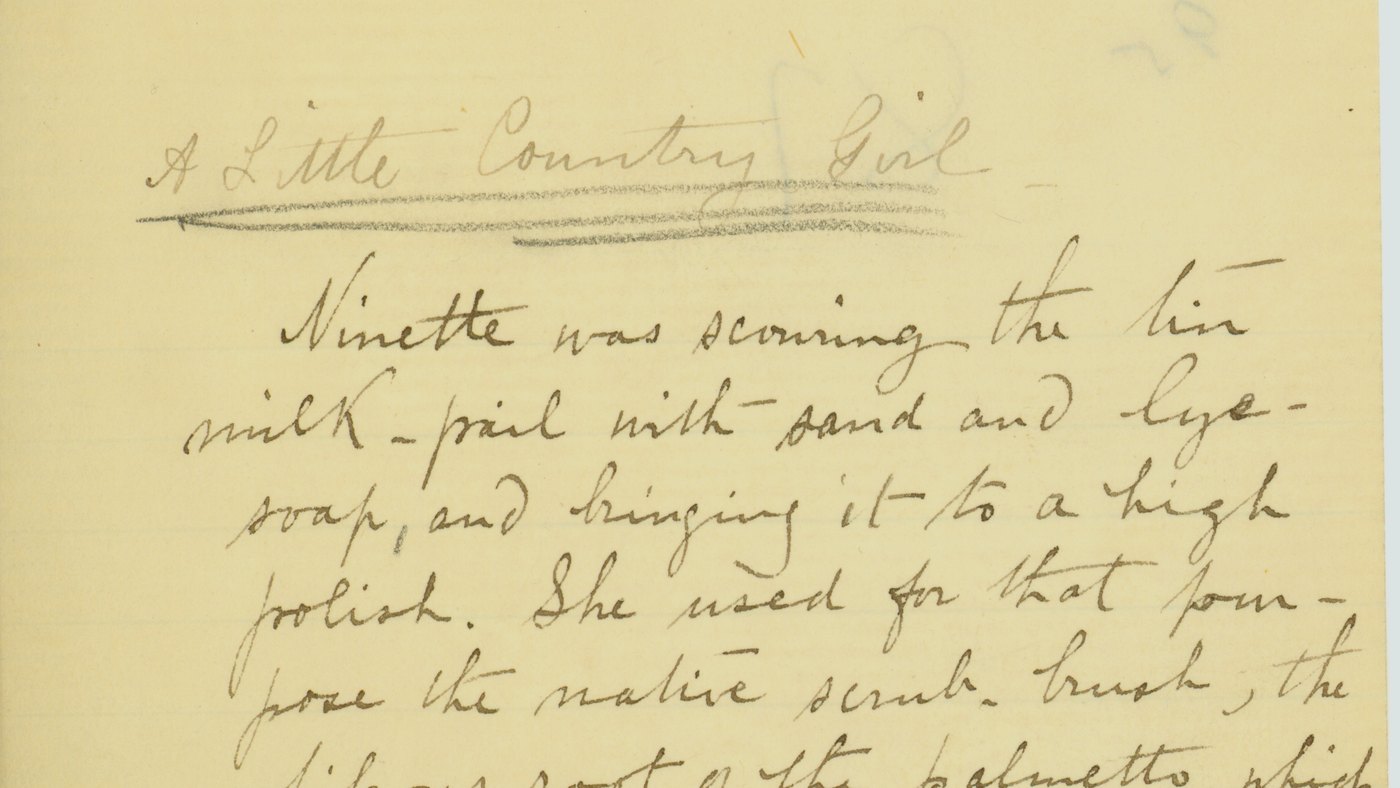 A Little Country Girl
Ninette was scouring the tin
milk-pail with sand and lye-
soap, and bringing it to a high
polish. She used for that pur-
pose the native scrub-brush, the
fibrous root of the palmetto, which